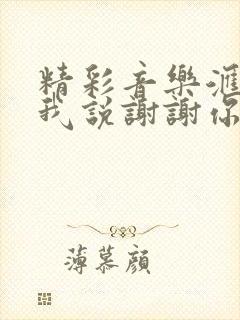 精彩音樂滙
我說謝謝你
薄慕顔